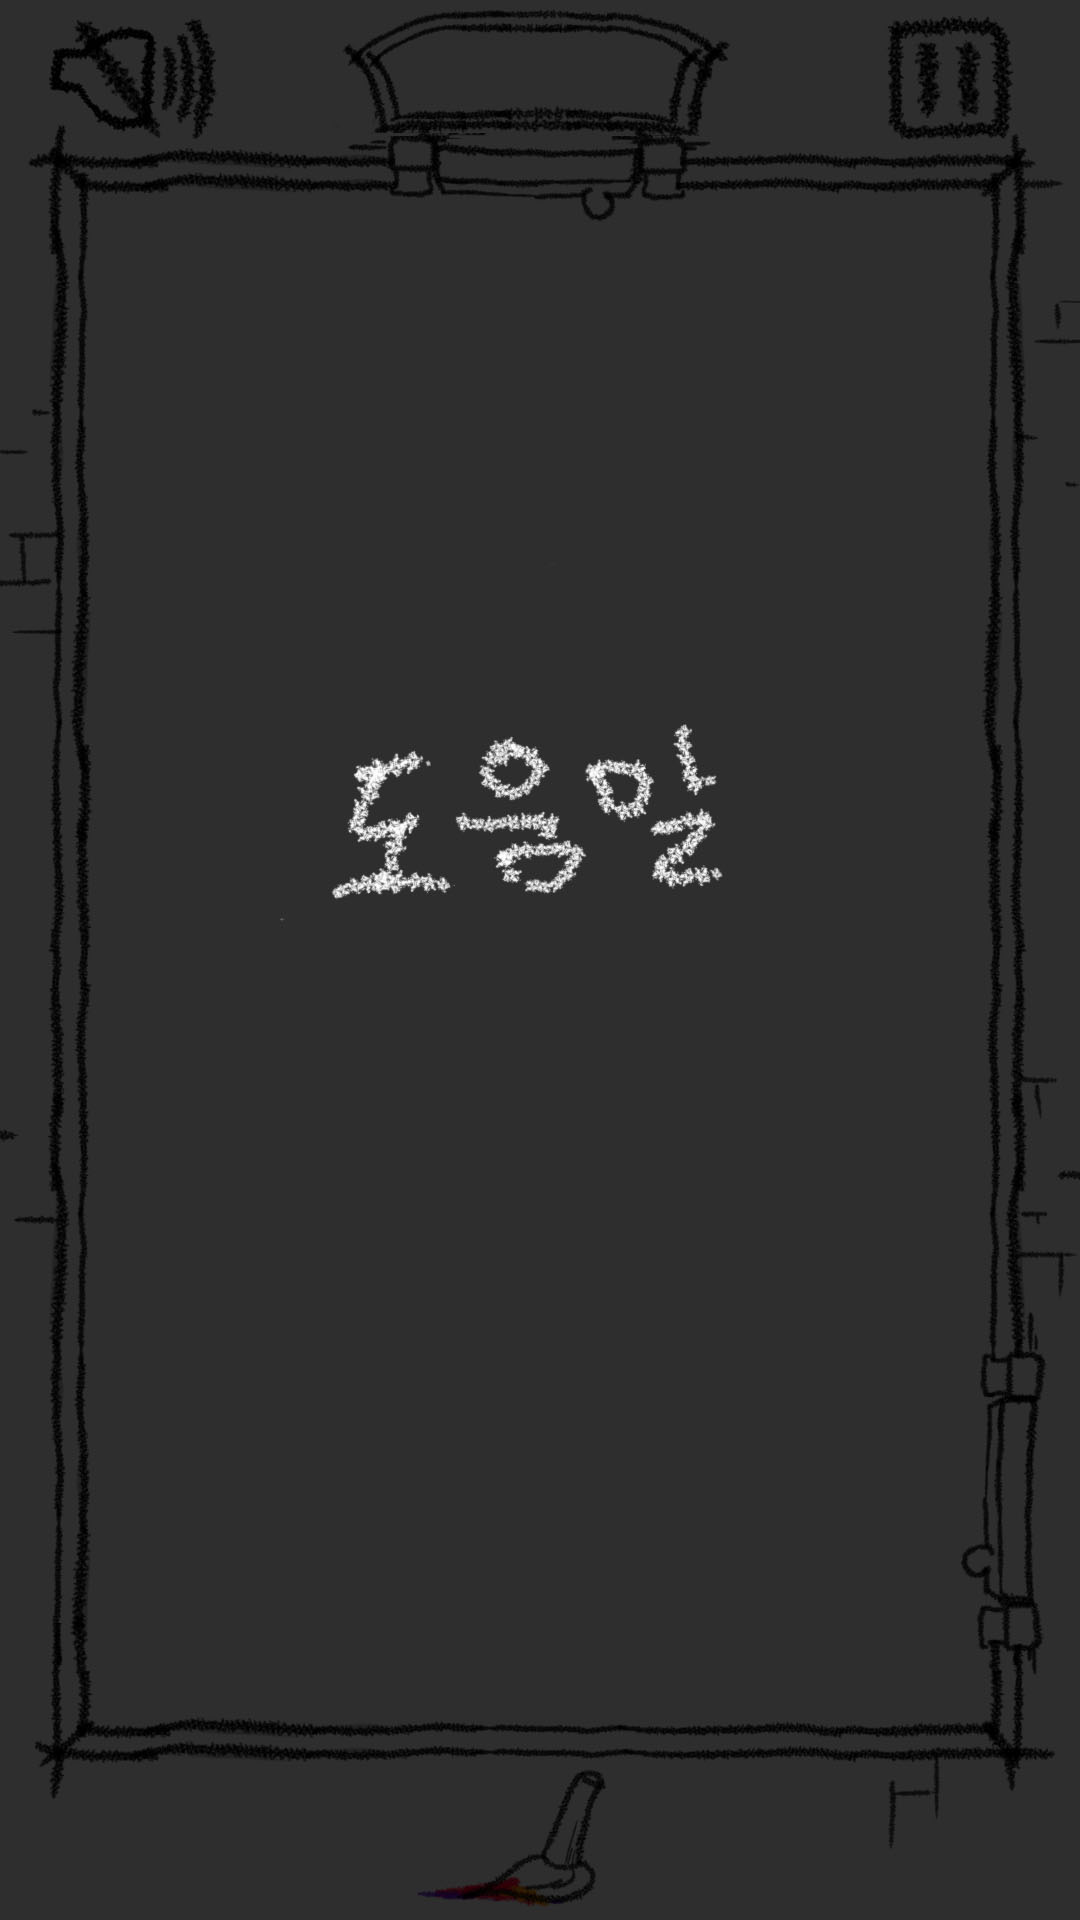 도움말